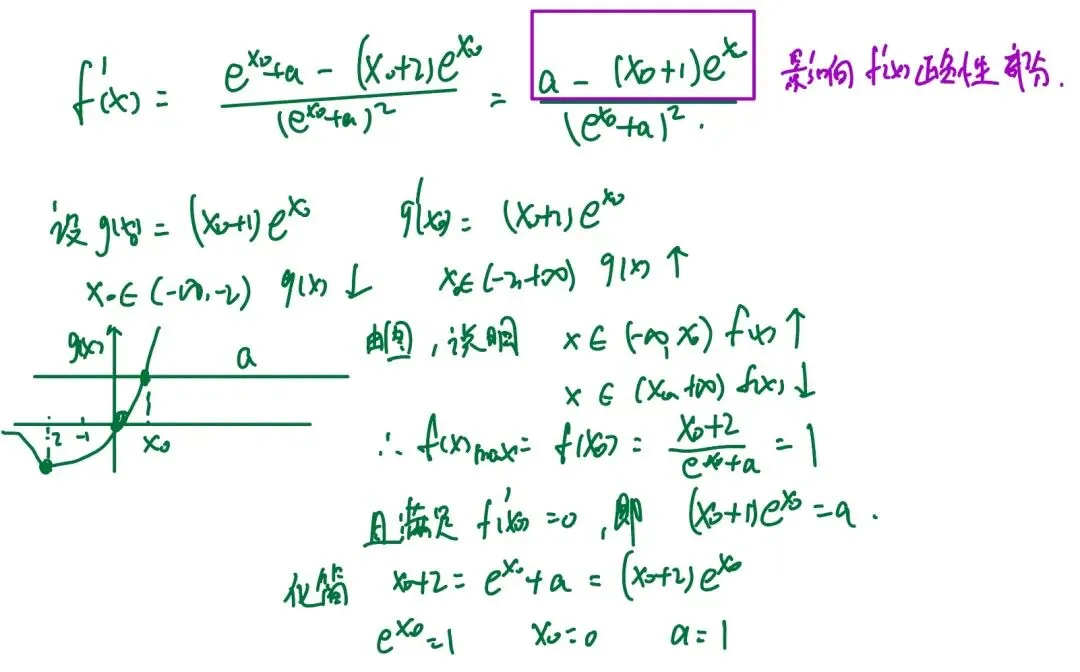 f'(x) = \frac{e^{x_0}+a-(x_0+2)e^{x_0}}{(e^{x_0}+a)^2} = \frac{a-(x_0+1)e^{x_0}}{(e^{x_0}+a)^2}. 影响 f'(x) 正负性 部分.
设 g(x) = (x_0+1)e^{x_0} g'(x_0) = (x_0+2)e^{x_0}
x_0∈(-∞,-2) g(x)↓ x_0∈(-2,+∞) g(x)↑
g(x) a
-2 -1 x_0
由图,说明 x∈(-∞,x_0) f(x)↑
x∈(x_0,+∞) f(x)↓
∴ f(x)_{max} = f(x_0) = \frac{x_0+2}{e^{x_0}+a} = 1
且满足 f'(x_0)=0,即 (x_0+1)e^{x_0}=a.
化简 x_0+2 = e^{x_0}+a = (x_0+2)e^{x_0}
e^{x_0}=1 x_0=0 a=1